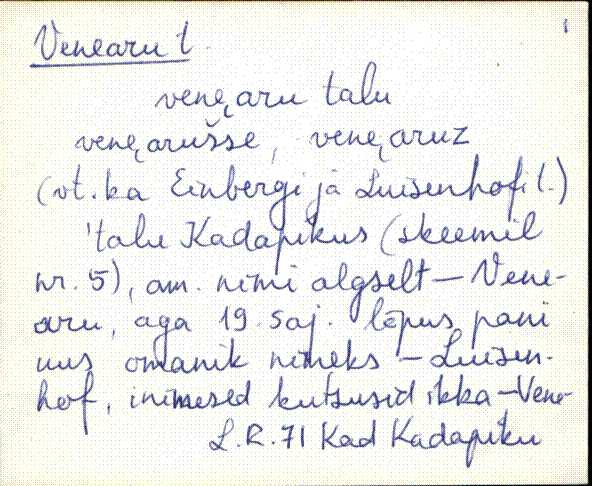 Venearu t. 1
vene͔aru talu
vene͔arušse, vene͔aruz
(vt. ka Einbergi ja Luisenhofi t.)
'talu Kadapikus (skeemil
nr. 5), am. nimi algselt – Vene-
aru, aga 19. saj. lõpus pani
uus omanik nimeks – Luisen-
hof, inimesed kutsusid ikka – Vene-
L.R. 71 Kad Kadapiku